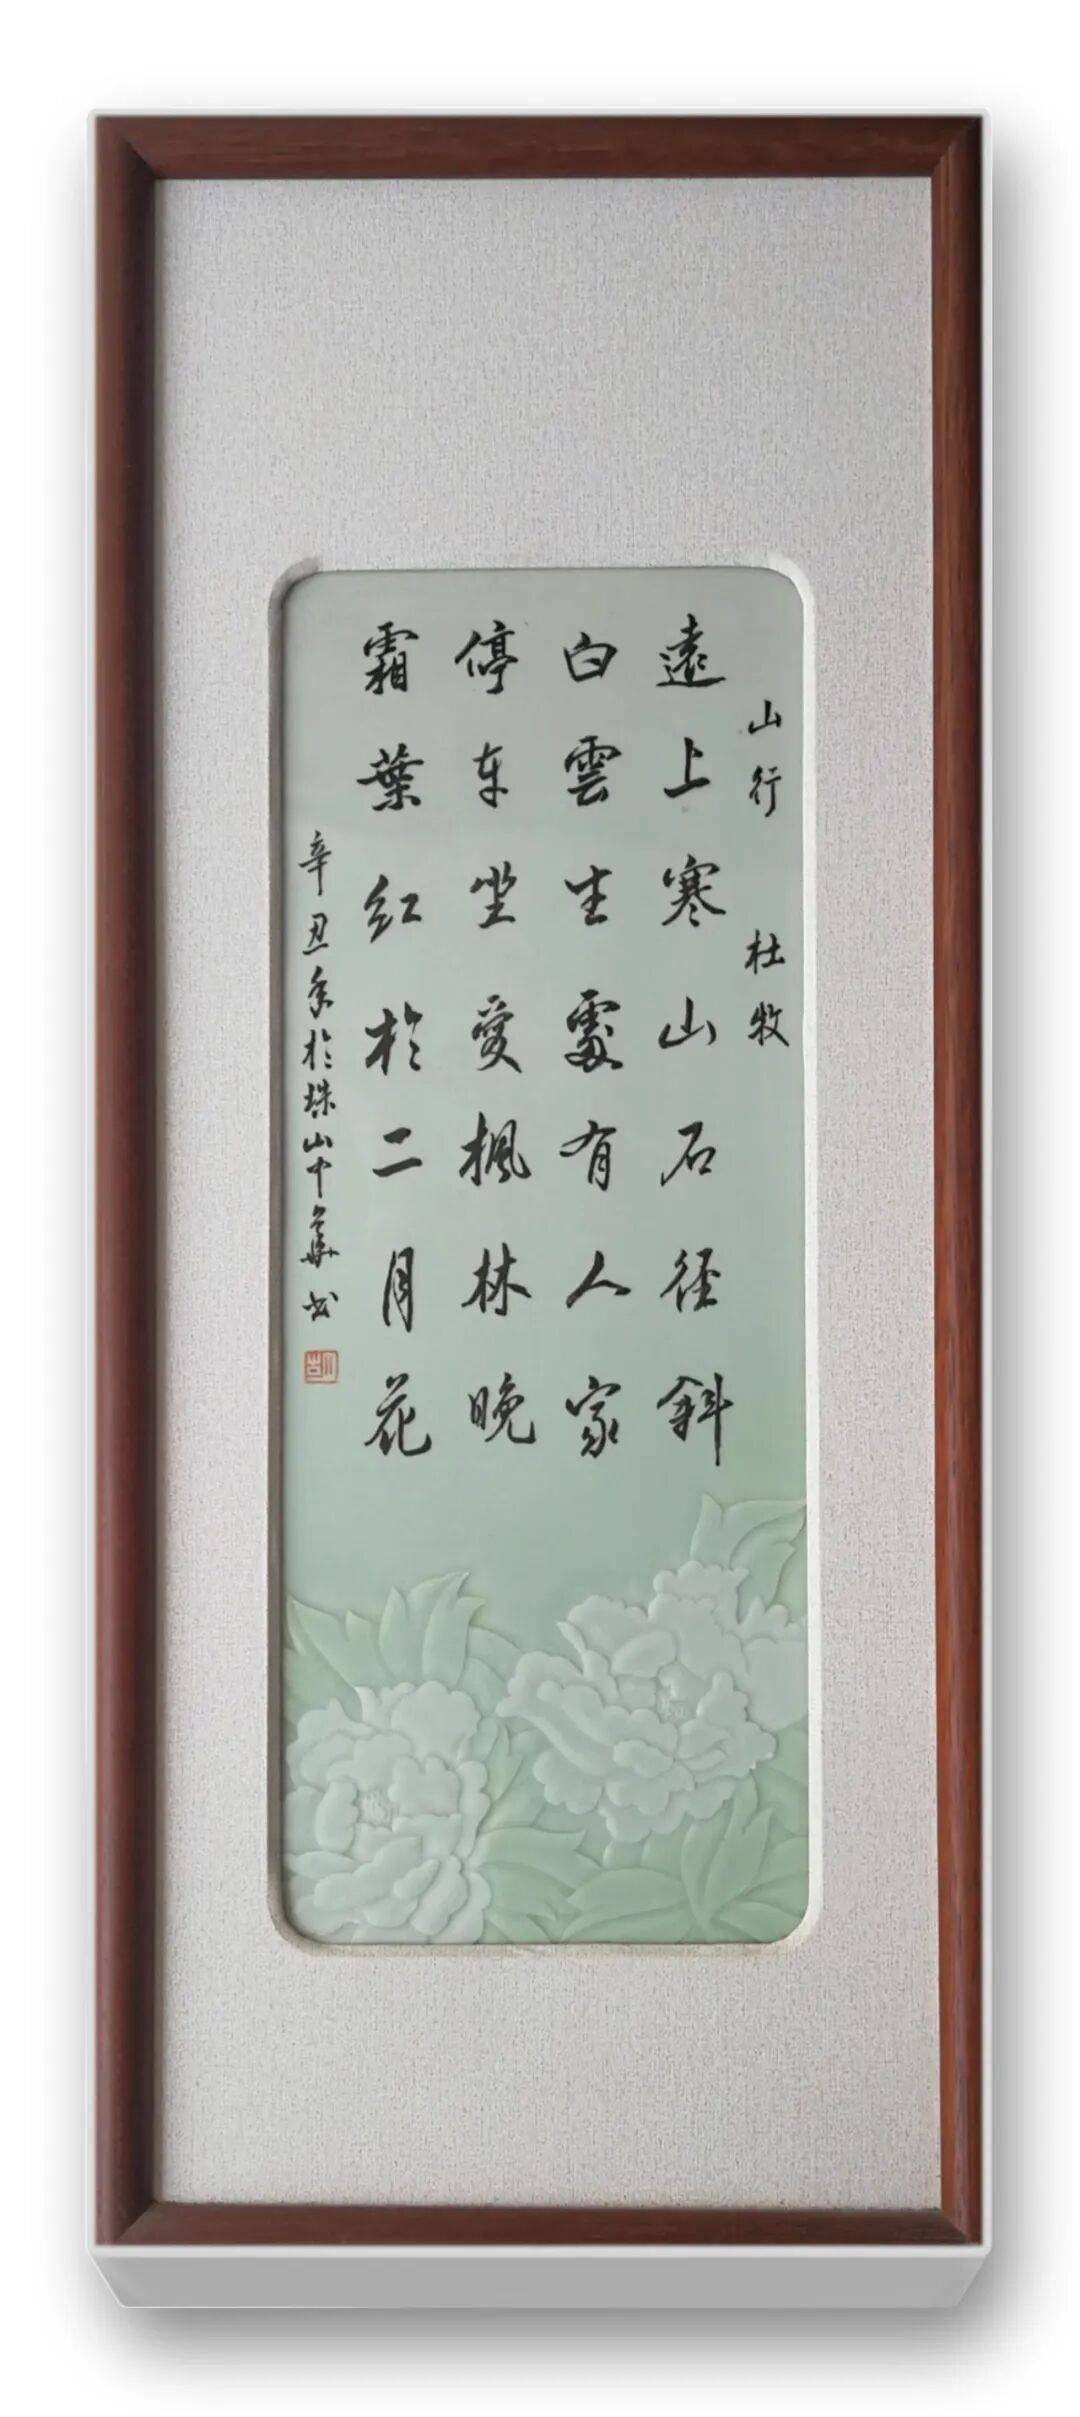 山行 杜牧
遠上寒山石径斜
白雲生處有人家
停车坐愛楓林晚
霜葉红於二月花
辛丑年於珠山中華书